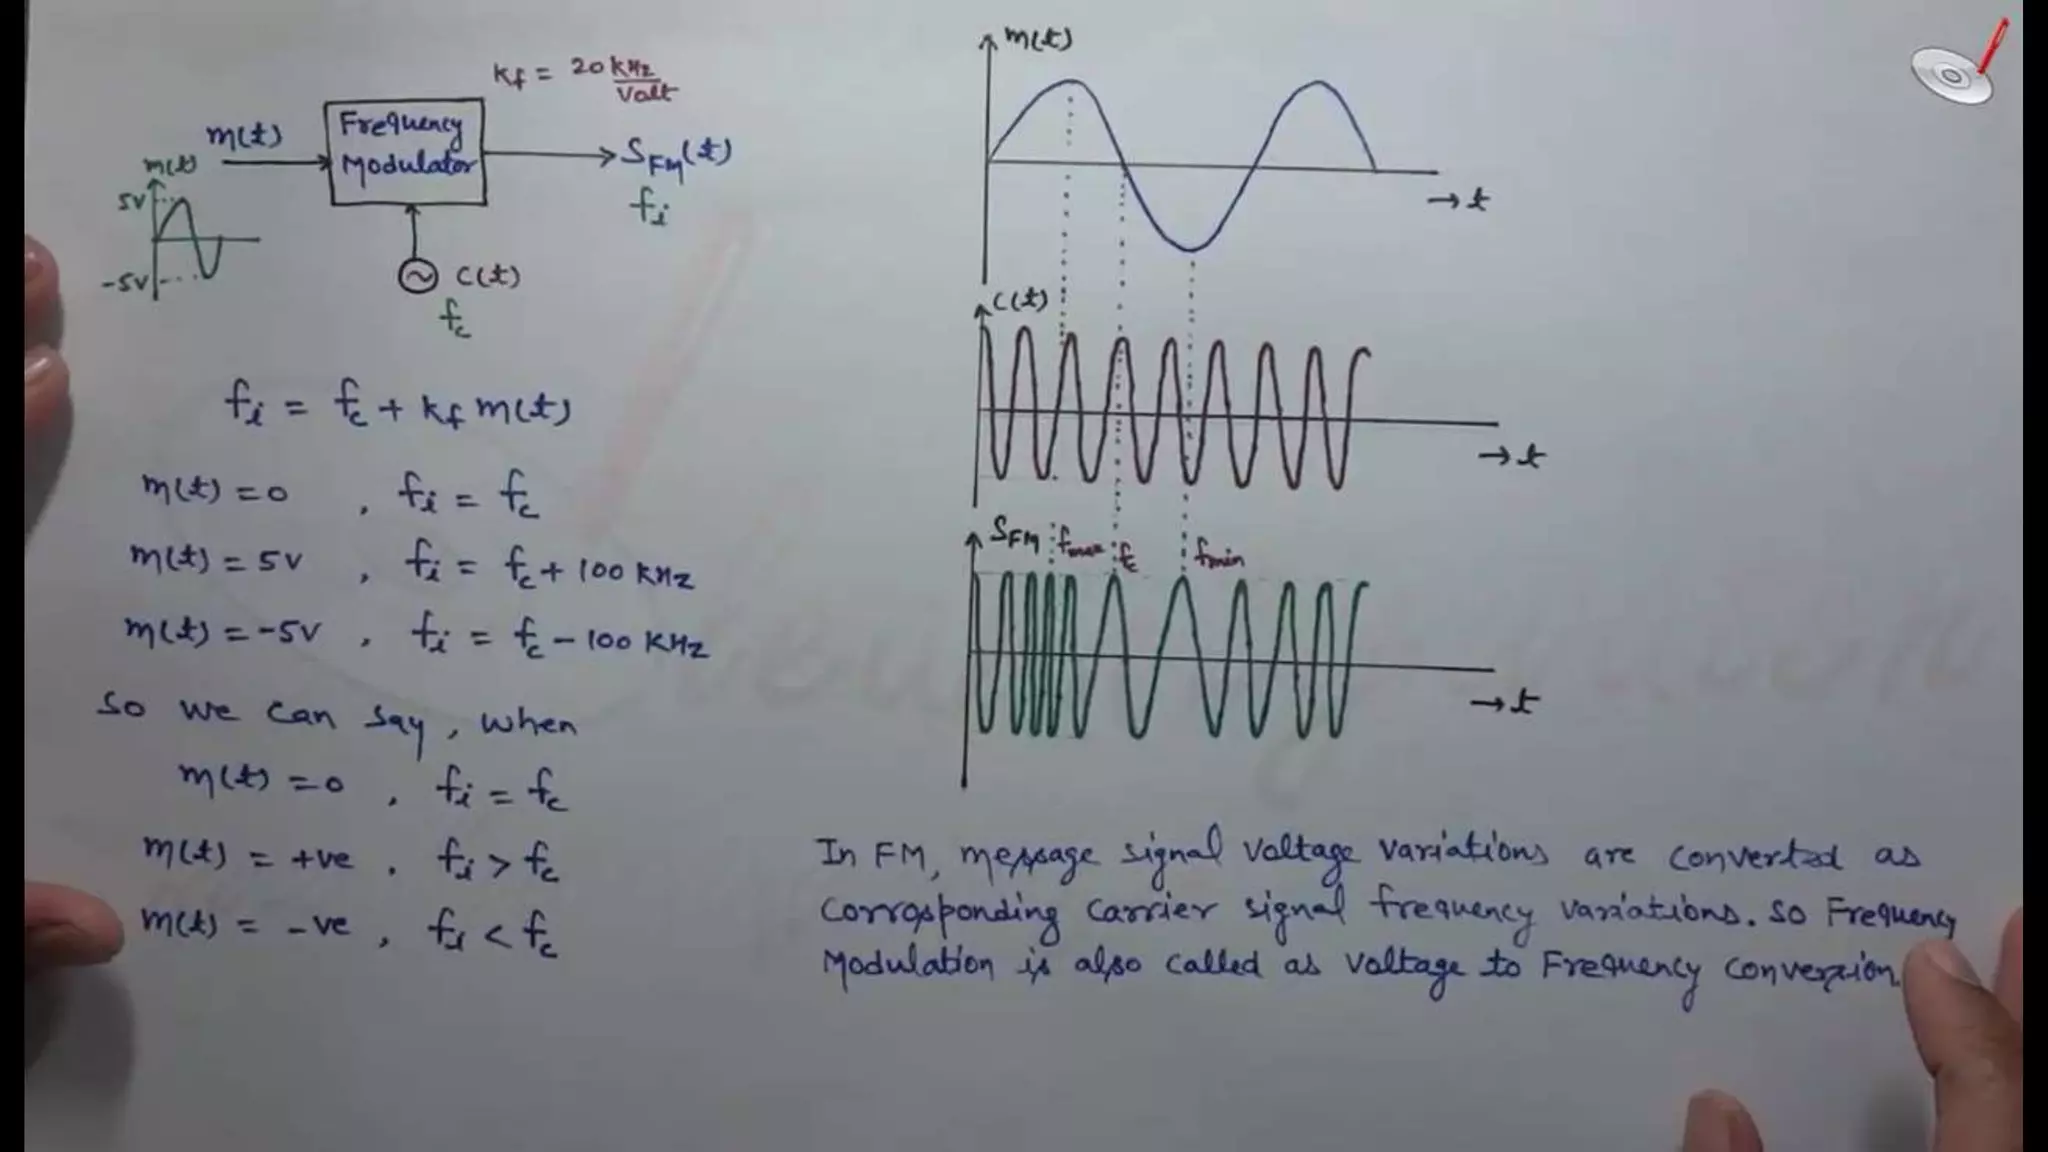 kf = 20 kHz/Volt
m(t)
Frequency
Modulator
SFM(t)
fi
m(t)
5V
-5V
c(t)
fc
fi = fc + kf m(t)
m(t) = 0 , fi = fc
m(t) = 5V , fi = fc + 100 KHz
m(t) = -5V , fi = fc - 100 KHz
So we can say, when
m(t) = 0 , fi = fc
m(t) = +ve , fi > fc
m(t) = -ve , fi < fc
m(t)
→ t
c(t)
→ t
SFM fmax fc fmin
→ t
In FM, message signal voltage variations are converted as
corresponding carrier signal frequency variations. So Frequency
Modulation is also called as voltage to Frequency conversion.